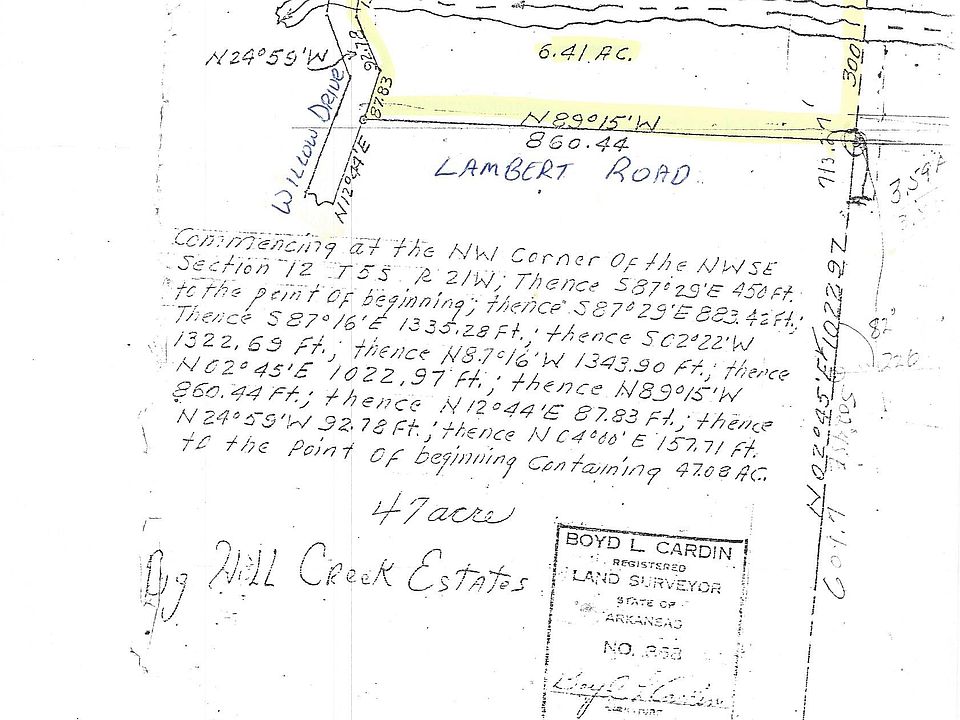 N24°59'W
92.78
87.83
6.41 AC.
300
N 89°15'W
860.44
WILLOW DRIVE
N12°44'E
LAMBERT ROAD
3.59
Commencing at the NW Corner Of the NWSE
Section 12 T5S R 21W; Thence S87°29'E 450 Ft.
to the point Of beginning; thence S87°29'E 883.42 Ft.;
Thence S87°16'E 1335.28 Ft.; thence S02°22'W
1322.69 Ft.; thence N87°16'W 1343.90 Ft.; thence
N02°45'E 1022.97 Ft.; thence N89°15'W
860.44 Ft.; thence N12°44'E 87.83 Ft.; thence
N24°59'W 92.78 Ft.; thence N04°00'E 157.71 Ft.
to the Point Of beginning Containing 47.08 AC.
N02°45'E 1022.97
82'
226
47 acre
Hill Creek Estates
BOYD L. CARDIN
REGISTERED
LAND SURVEYOR
STATE OF
ARKANSAS
NO. 363
Boyd L Cardin